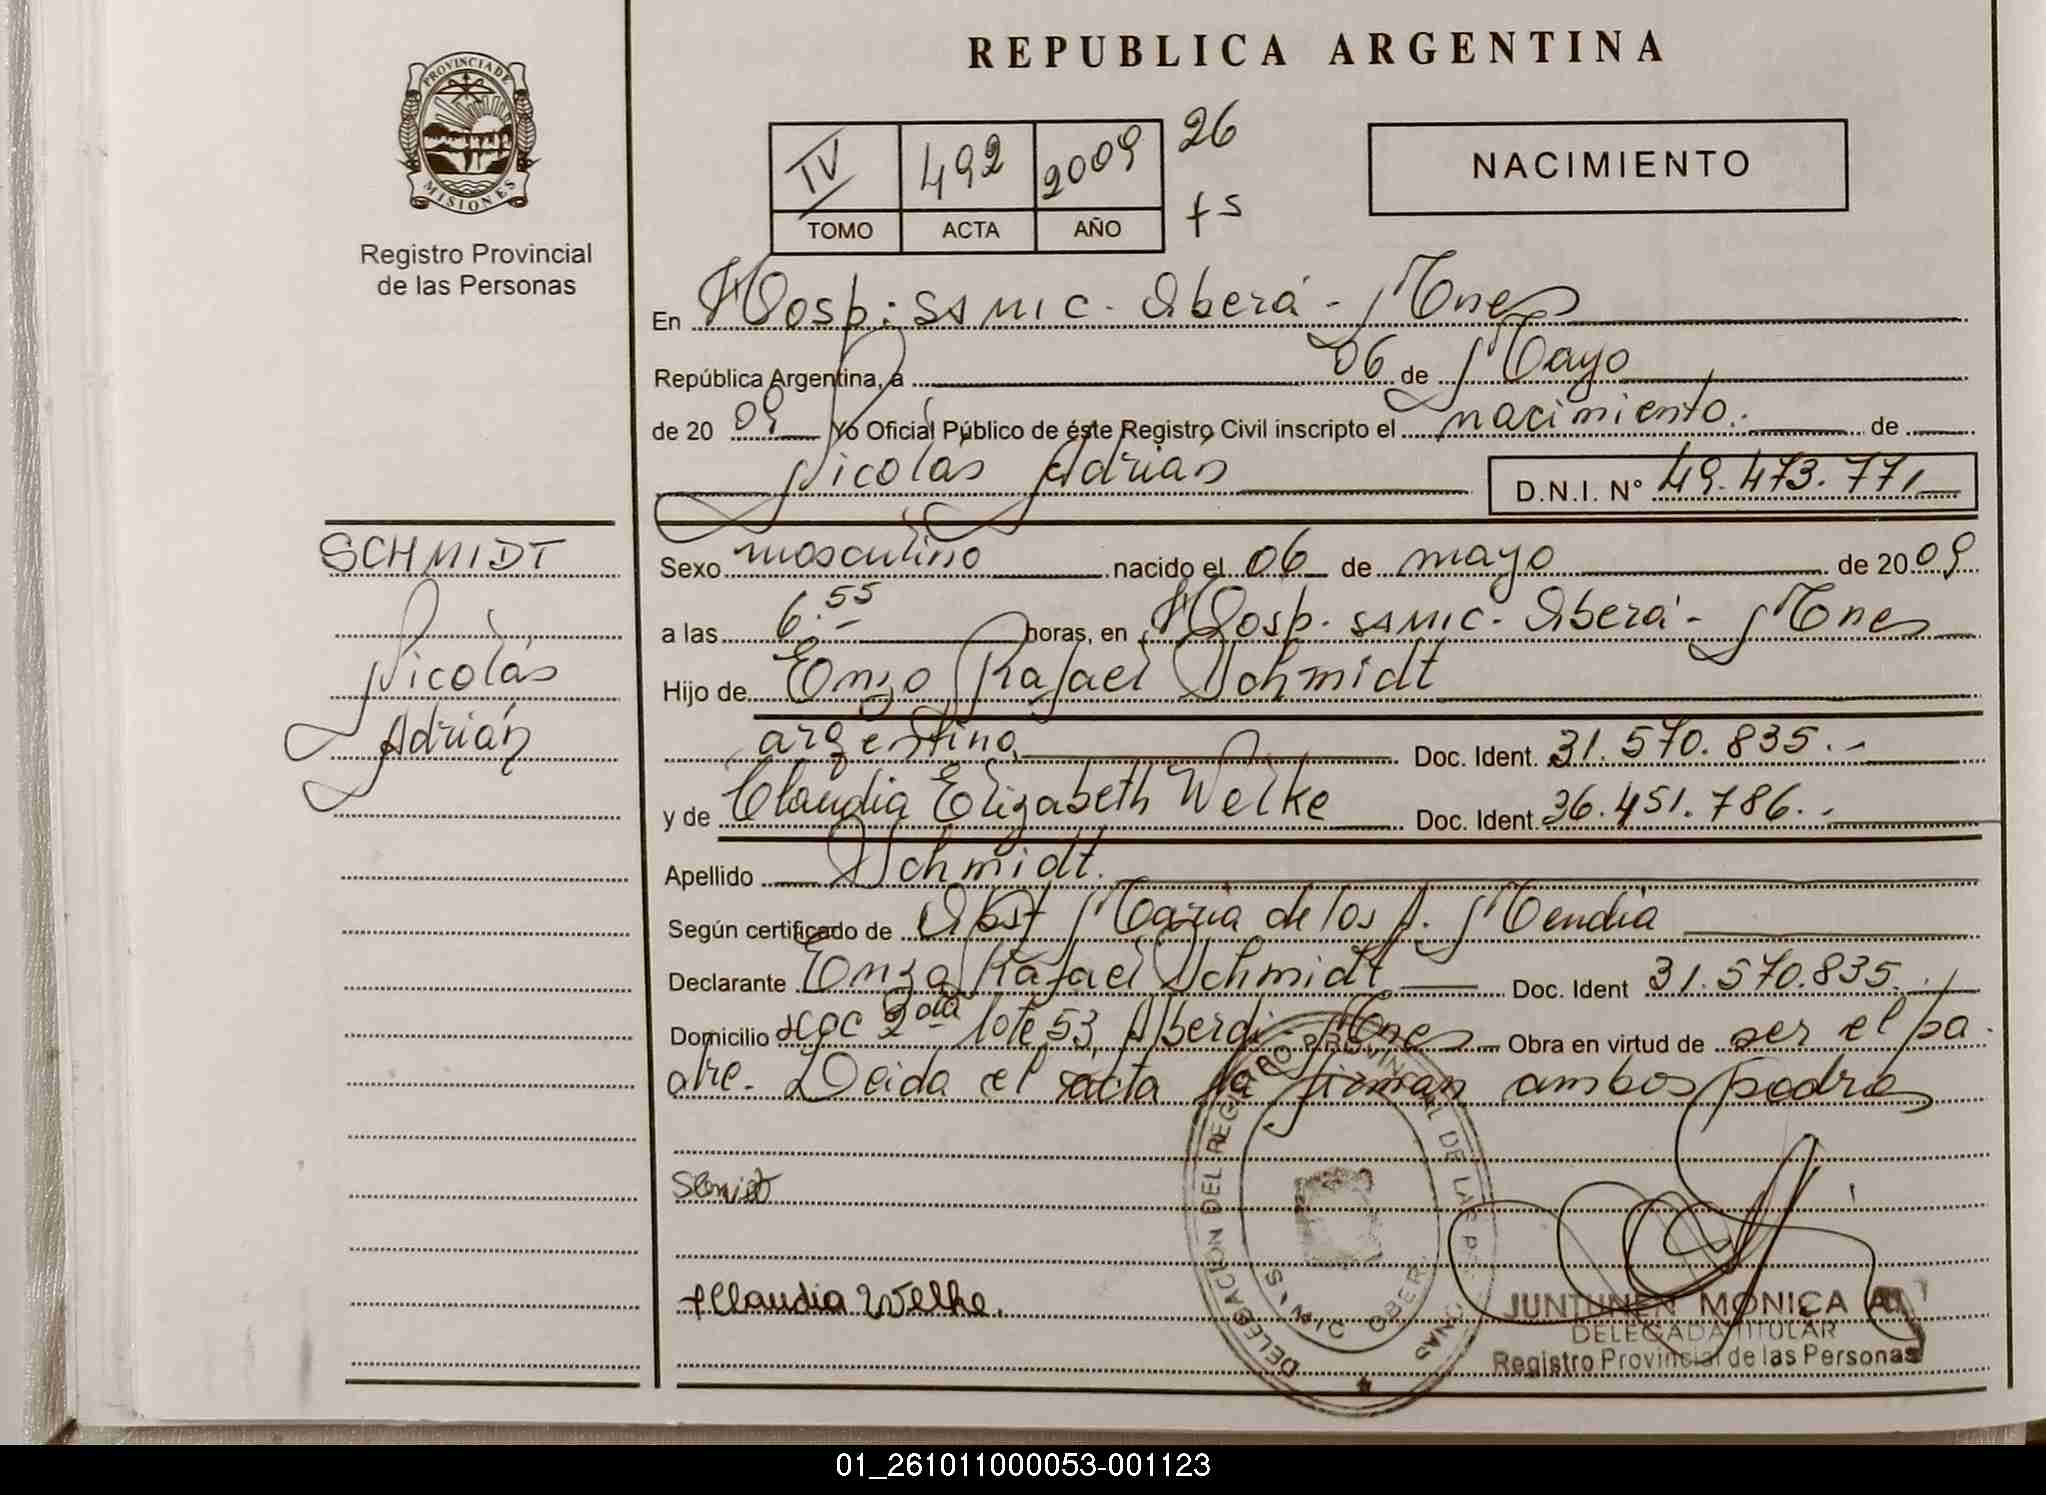 REPUBLICA ARGENTINA
PROVINCIA DE
MISIONES
Registro Provincial
de las Personas
IV 492 2009 26
TOMO ACTA AÑO fs
NACIMIENTO
En Hosp: SAMIC - Oberá - Mnes
República Argentina, a 06 de Mayo
de 20 09 Yo Oficial Público de éste Registro Civil inscripto el nacimiento. de
Nicolás Adrián D.N.I. N° 49.473.771
SCHMIDT
Nicolás
Adrián
Sexo masculino nacido el 06 de mayo de 20 09
a las 6.55 horas, en Hosp. SAMIC - Oberá - Mnes
Hijo de Enzo Rafael Schmidt
argentino Doc. Ident. 31.570.835.-
y de Claudia Elizabeth Welke Doc. Ident. 36.451.786.-
Apellido Schmidt.
Según certificado de Obst María de los A. Mendia
Declarante Enzo Rafael Schmidt Doc. Ident 31.570.835.-
Domicilio lote 53, Alberdi - Mnes Obra en virtud de ser el pa-
dre. Leida el acta la firman ambos padres
Claudia Welke.
DELEGACION DEL REGISTRO PROVINCIAL DE LAS PERSONAS
SAMIC OBERA
JUNTUNEN MONICA A.
DELEGADA TITULAR
Registro Provincial de las Personas
01_261011000053-001123